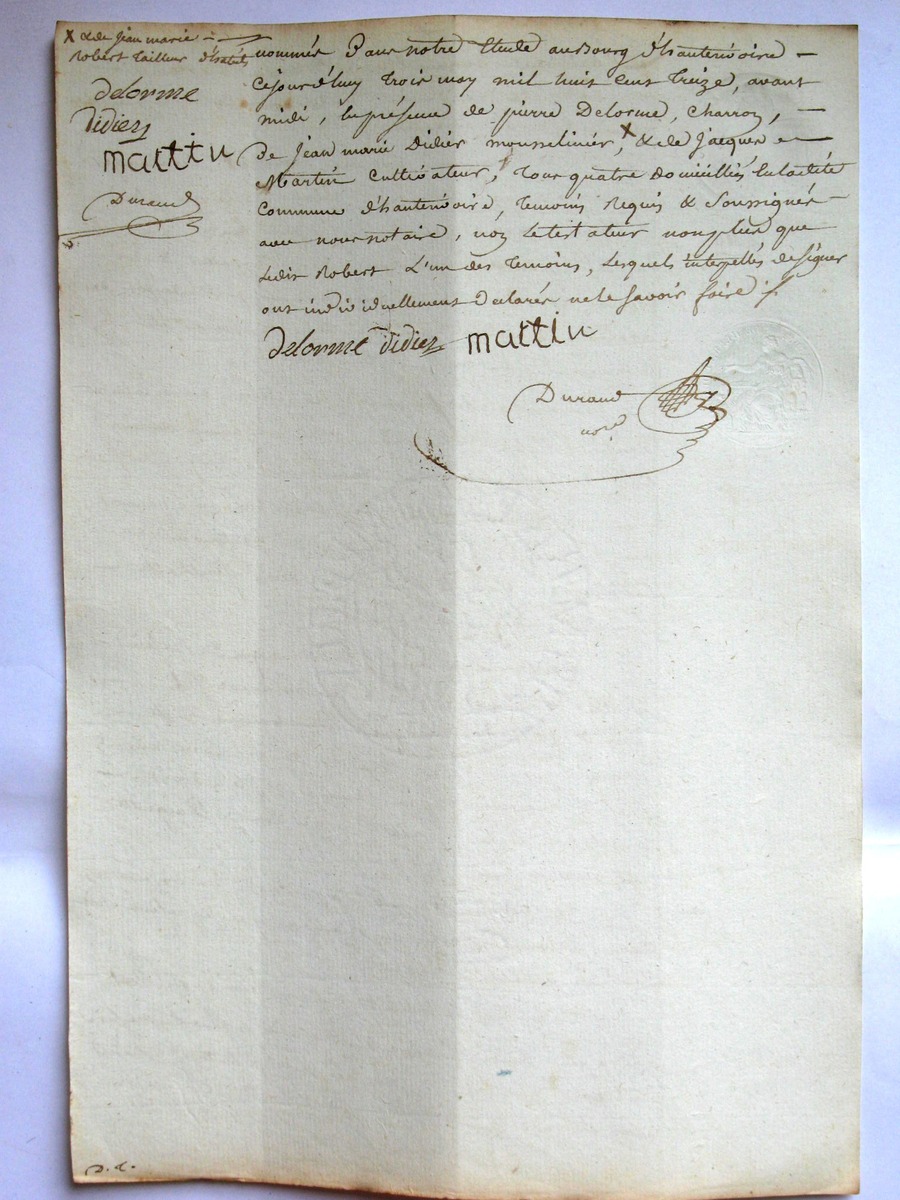 X & de Jean marie –
Robert tailleur d'habits
delorme
didier
martin
Durand
nommés Dans notre Etude au Bourg d'hauterivoire –
Cejourd'huy trois may mil huit cent treize, avant
midi, En présence de pierre Delorme, Charron, –
De Jean marie Didier mousselinier, X & de Jacques
Martin Cultivateur, tous quatre domiciliés en ladite
Commune d'hauterivoire, temoins Requis & Soussignés
avec nous notaire, non le testateur non plus que
Ledit Robert L'un des temoins, Lesquels interpellés de Signer
ont individuellement Declarés ne le Savoir faire ./.
delorme didier martin
Durand
nore
D. L.